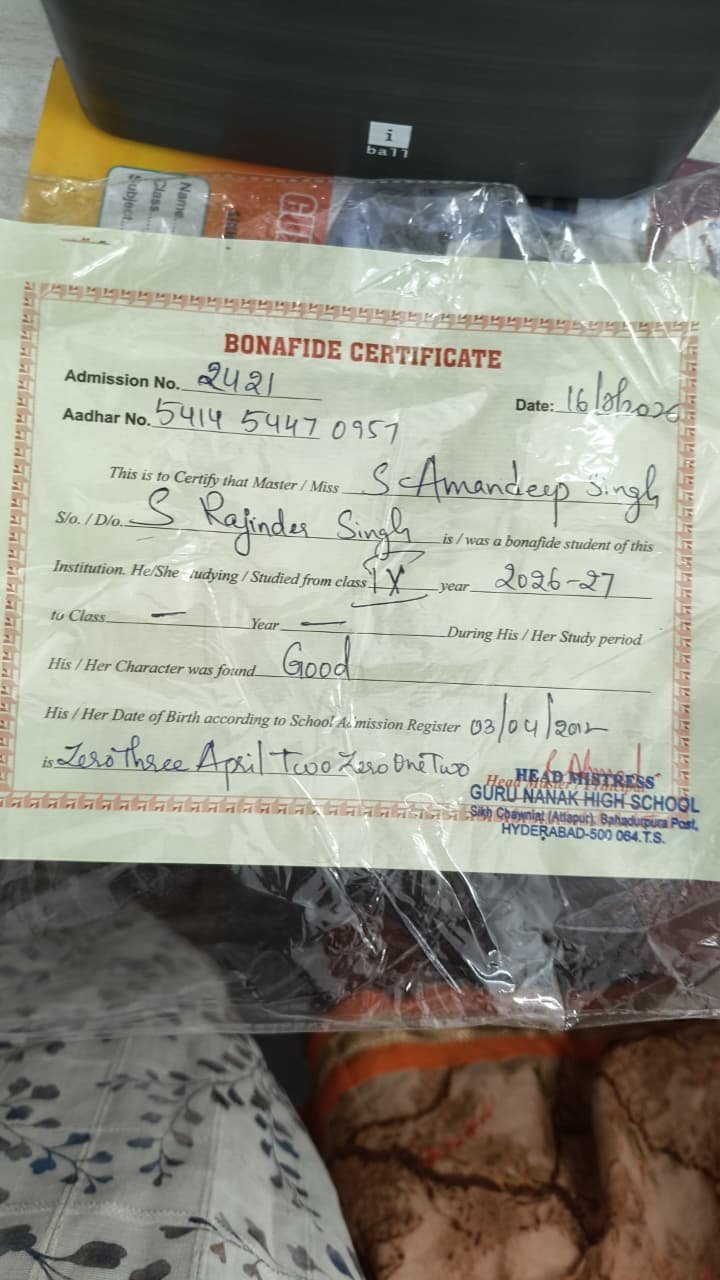 i
ball
Name
Class
Subject
GU
BONAFIDE CERTIFICATE
Admission No. 2421
Date: 16/ /2026
Aadhar No. 5414 5447 0957
This is to Certify that Master / Miss S Amandeep Singh
S/o. / D/o. S Rajinder Singh is / was a bonafide student of this
Institution. He/She tudying / Studied from class IX year 2026-27
to Class — Year — During His / Her Study period
His / Her Character was found Good
His / Her Date of Birth according to School Admission Register 03/04/2012
is Zero Three April Two Zero One Two
HEAD MISTRESS
GURU NANAK HIGH SCHOOL
Sikh Chawniat (Attapur), Bahadurpura Post,
HYDERABAD-500 064.T.S.